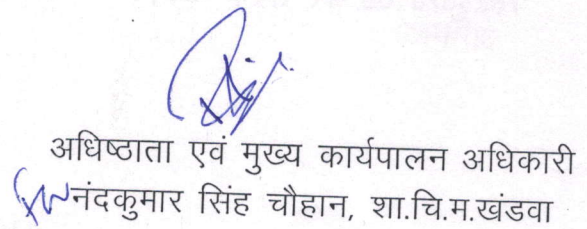 अधिष्ठाता एवं मुख्य कार्यपालन अधिकारी
नंदकुमार सिंह चौहान, शा.चि.म.खंडवा